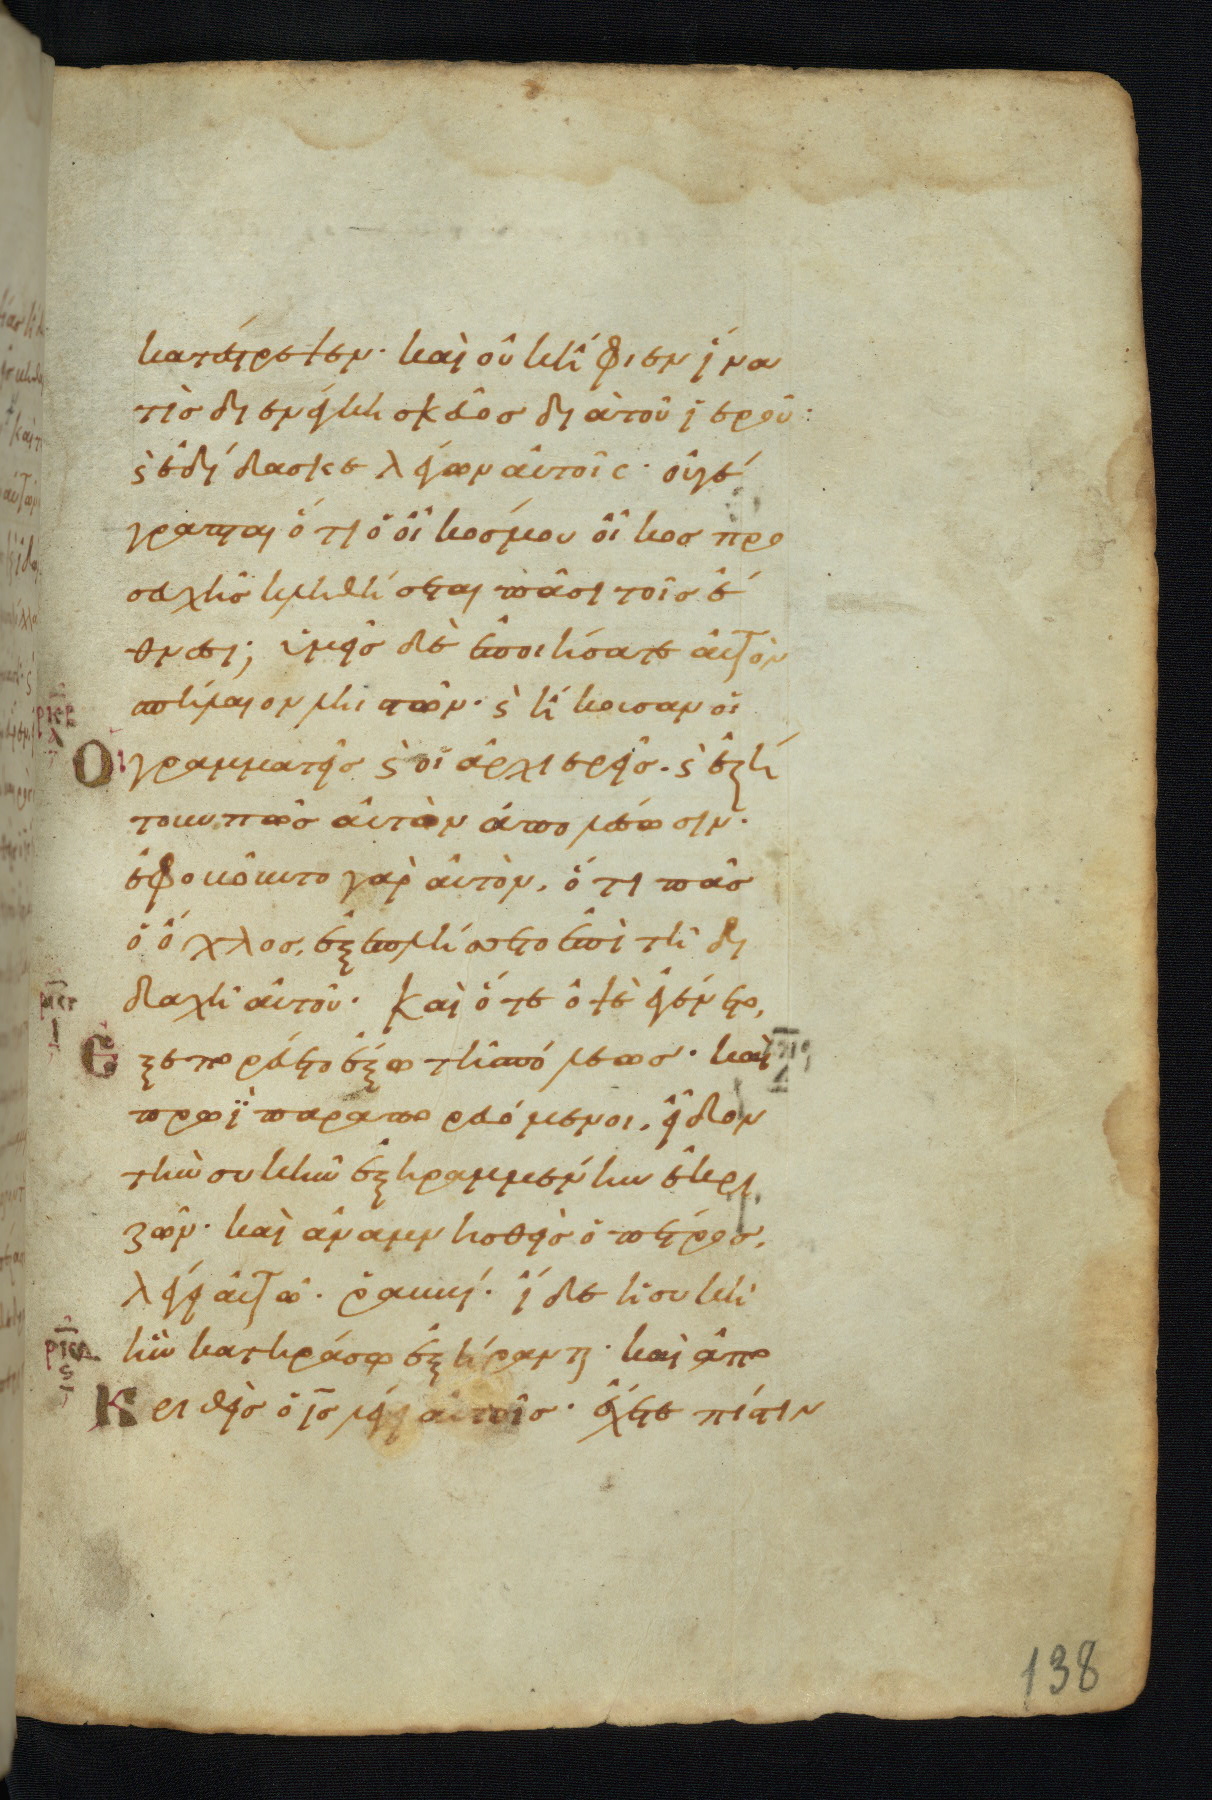 κατέστρεψεν· καὶ οὐκ ἤφιεν ἵνα
τὶς διενέγκη σκεῦος διὰ τοῦ ἱεροῦ:
ϗ ἐδίδασκε λέγων αὐτοῖς· οὐ γέ
γραπται ὅτι ὁ οἶκός μου οἶκος προ
σευχῆς κληθήσεται πᾶσι τοῖς ἔ
θνεσι; ὑμεῖς δὲ ἐποιήσατε αὐτὸν
σπήλαιον ληστῶν· ϗ ἤκουσαν οἱ
Οἱ γραμματεῖς ϗ οἱ ἀρχιερεῖς. ϗ ἐζή
τουν πῶς αὐτὸν ἀπολέσωσιν·
ἐφοβοῦντο γὰρ αὐτὸν, ὅτι πᾶς
ὁ ὄχλος, ἐξεπλήσσετο ἐπὶ τῆ δι
δαχῆ αὐτοῦ· Καὶ ὅτε ὀψὲ ἐγένετο,
Ἐξεπορεύετο ἔξω τῆς πόλεως· καὶ
πρωῒ παραπορευόμενοι, εἶδον
τὴν συκῆν ἐξηραμμένην ἐκ ρι
ζῶν· καὶ ἀναμνησθεὶς ὁ πέτρος,
λέγει αὐτῶ· ῥαββί· ἴδε ἡ συκῆ
ἣν κατηράσω ἐξήρανται· καὶ ἀπο
Κριθεὶς ὁ ις λέγει αὐτοῖς· ἔχετε πίστιν
138